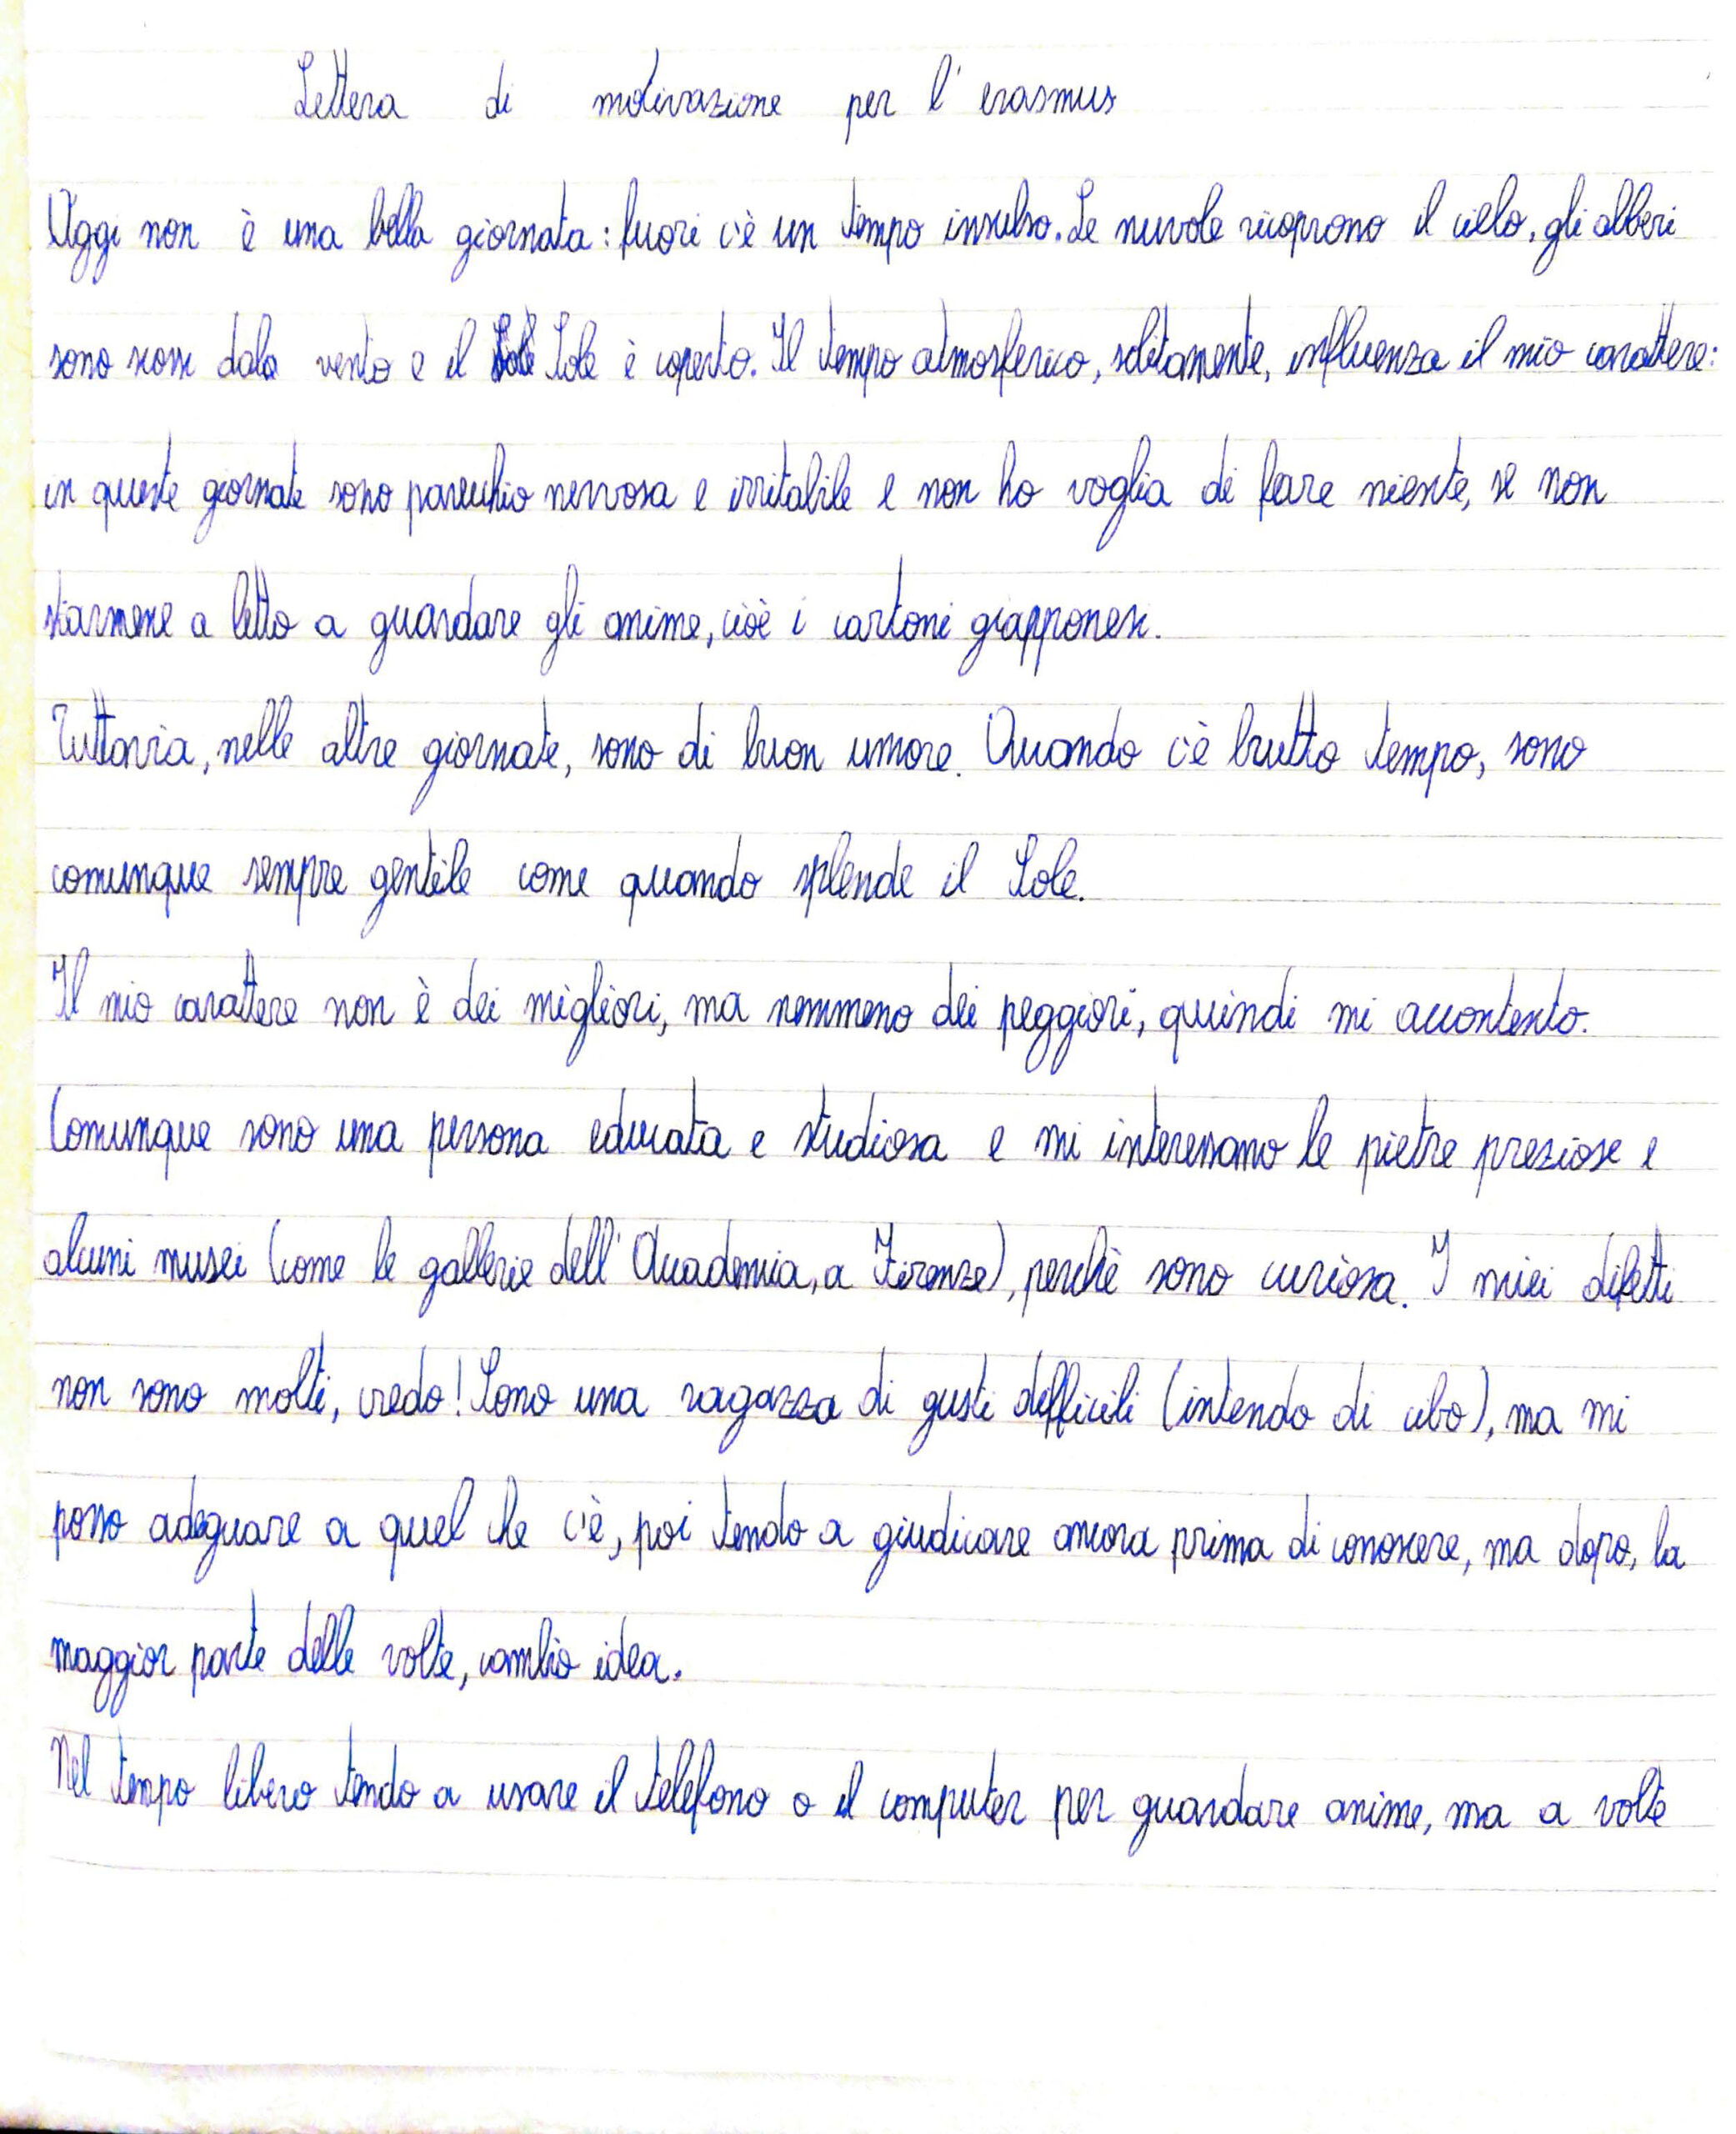 Lettera di motivazione per l'erasmus
Oggi non è una bella giornata: fuori c'è un tempo insulso. Le nuvole ricoprono il cielo, gli alberi
sono scossi dala vento e il Sole è coperto. Il tempo atmosferico, solitamente, influenza il mio carattere:
in queste giornate sono parecchio nervosa e irritabile e non ho voglia di fare niente, se non
starmene a letto a guardare gli anime, cioè i cartoni giapponesi.
Tuttavia, nelle altre giornate, sono di buon umore. Quando c'è brutto tempo, sono
comunque sempre gentile come quando splende il Sole.
Il mio carattere non è dei migliori, ma nemmeno dei peggiori, quindi mi accontento.
Comunque sono una persona educata e studiosa e mi interessano le pietre preziose e
alcuni musei (come le gallerie dell'Accademia, a Firenze), perchè sono curiosa. I miei difetti
non sono molti, credo! Sono una ragazza di gusti difficili (intendo di cibo), ma mi
posso adeguare a quel che c'è, poi tendo a giudicare ancora prima di conoscere, ma dopo, la
maggior parte delle volte, cambio idea.
Nel tempo libero tendo a usare il telefono o il computer per guardare anime, ma a volte